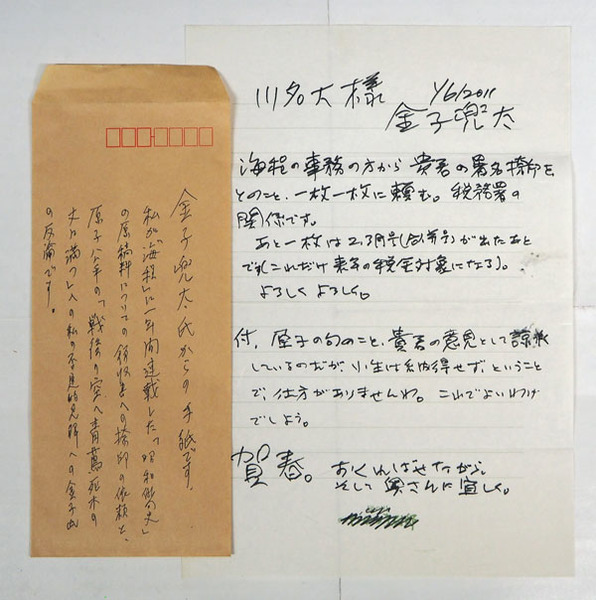 川名大様
1/6/2011
金子兜太
海程の事務の方から貴君の署名捺印を
とのこと、一枚一枚に頼む。税務署の
関係です。
あと一枚は2、3月号(合併号)が出たあと
です(これだけ来年の税金対象になる)。
よろしくよろしく。
付、原子の句のこと、貴君の意見として諒承
しているのだが、小生は納得せず、ということ
で、仕方がありませんね。これでよいわけ
でしょう。
賀春。おくればせながら、
そして奥さんに宜しく。
金子兜太氏からの手紙です。
私が「海程」に一年間連載した「昭和俳句史」
の原稿料についての領収書への捺印の依頼と、
原子公平の「戦後の空へ青蔦死木の
丈に満つ」への私の否定的見解への金子氏
の反論です。